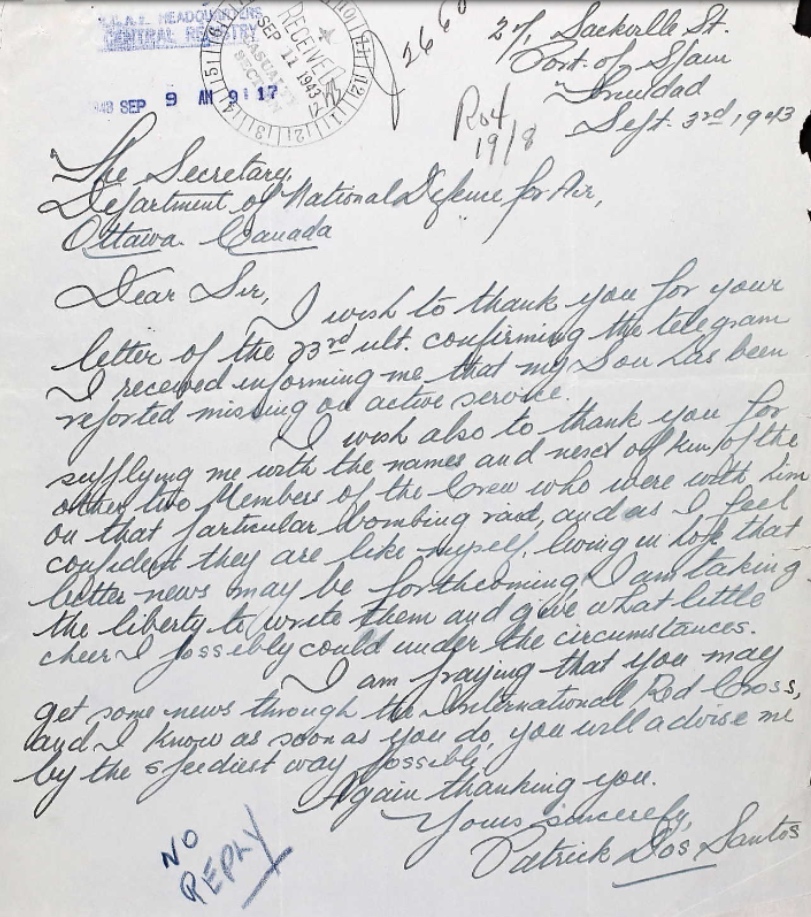 R.C.A.F. HEADQUARTERS
CENTRAL REGISTRY
SEP 9 AM 9 17
RECEIVED
SEP 11 1943
CASUALTY
SECTION
266
27, Sackville St.
Port. of Spain
Trinidad
Sept. 3rd, 1943
19/8
The Secretary,
Department of National Defence for Air,
Ottawa. Canada
Dear Sir,
I wish to thank you for your
letter of the 23rd ult. confirming the telegram
I received informing me that my Son has been
reported missing on active service.
I wish also to thank you for
supplying me with the names and next of kin, of the
other two Members of the Crew who were with him
on that particular bombing raid, and as I feel
confident they are like myself, living in hope that
better news may be forthcoming, I am taking
the liberty to write them and give what little
cheer I possibly could under the circumstances.
I am praying that you may
get some news through the International Red Cross,
and I know as soon as you do, you will advise me
by the speediest way possible.
Again thanking you.
Yours sincerely,
Patrick Dos Santos
NO
REPLY